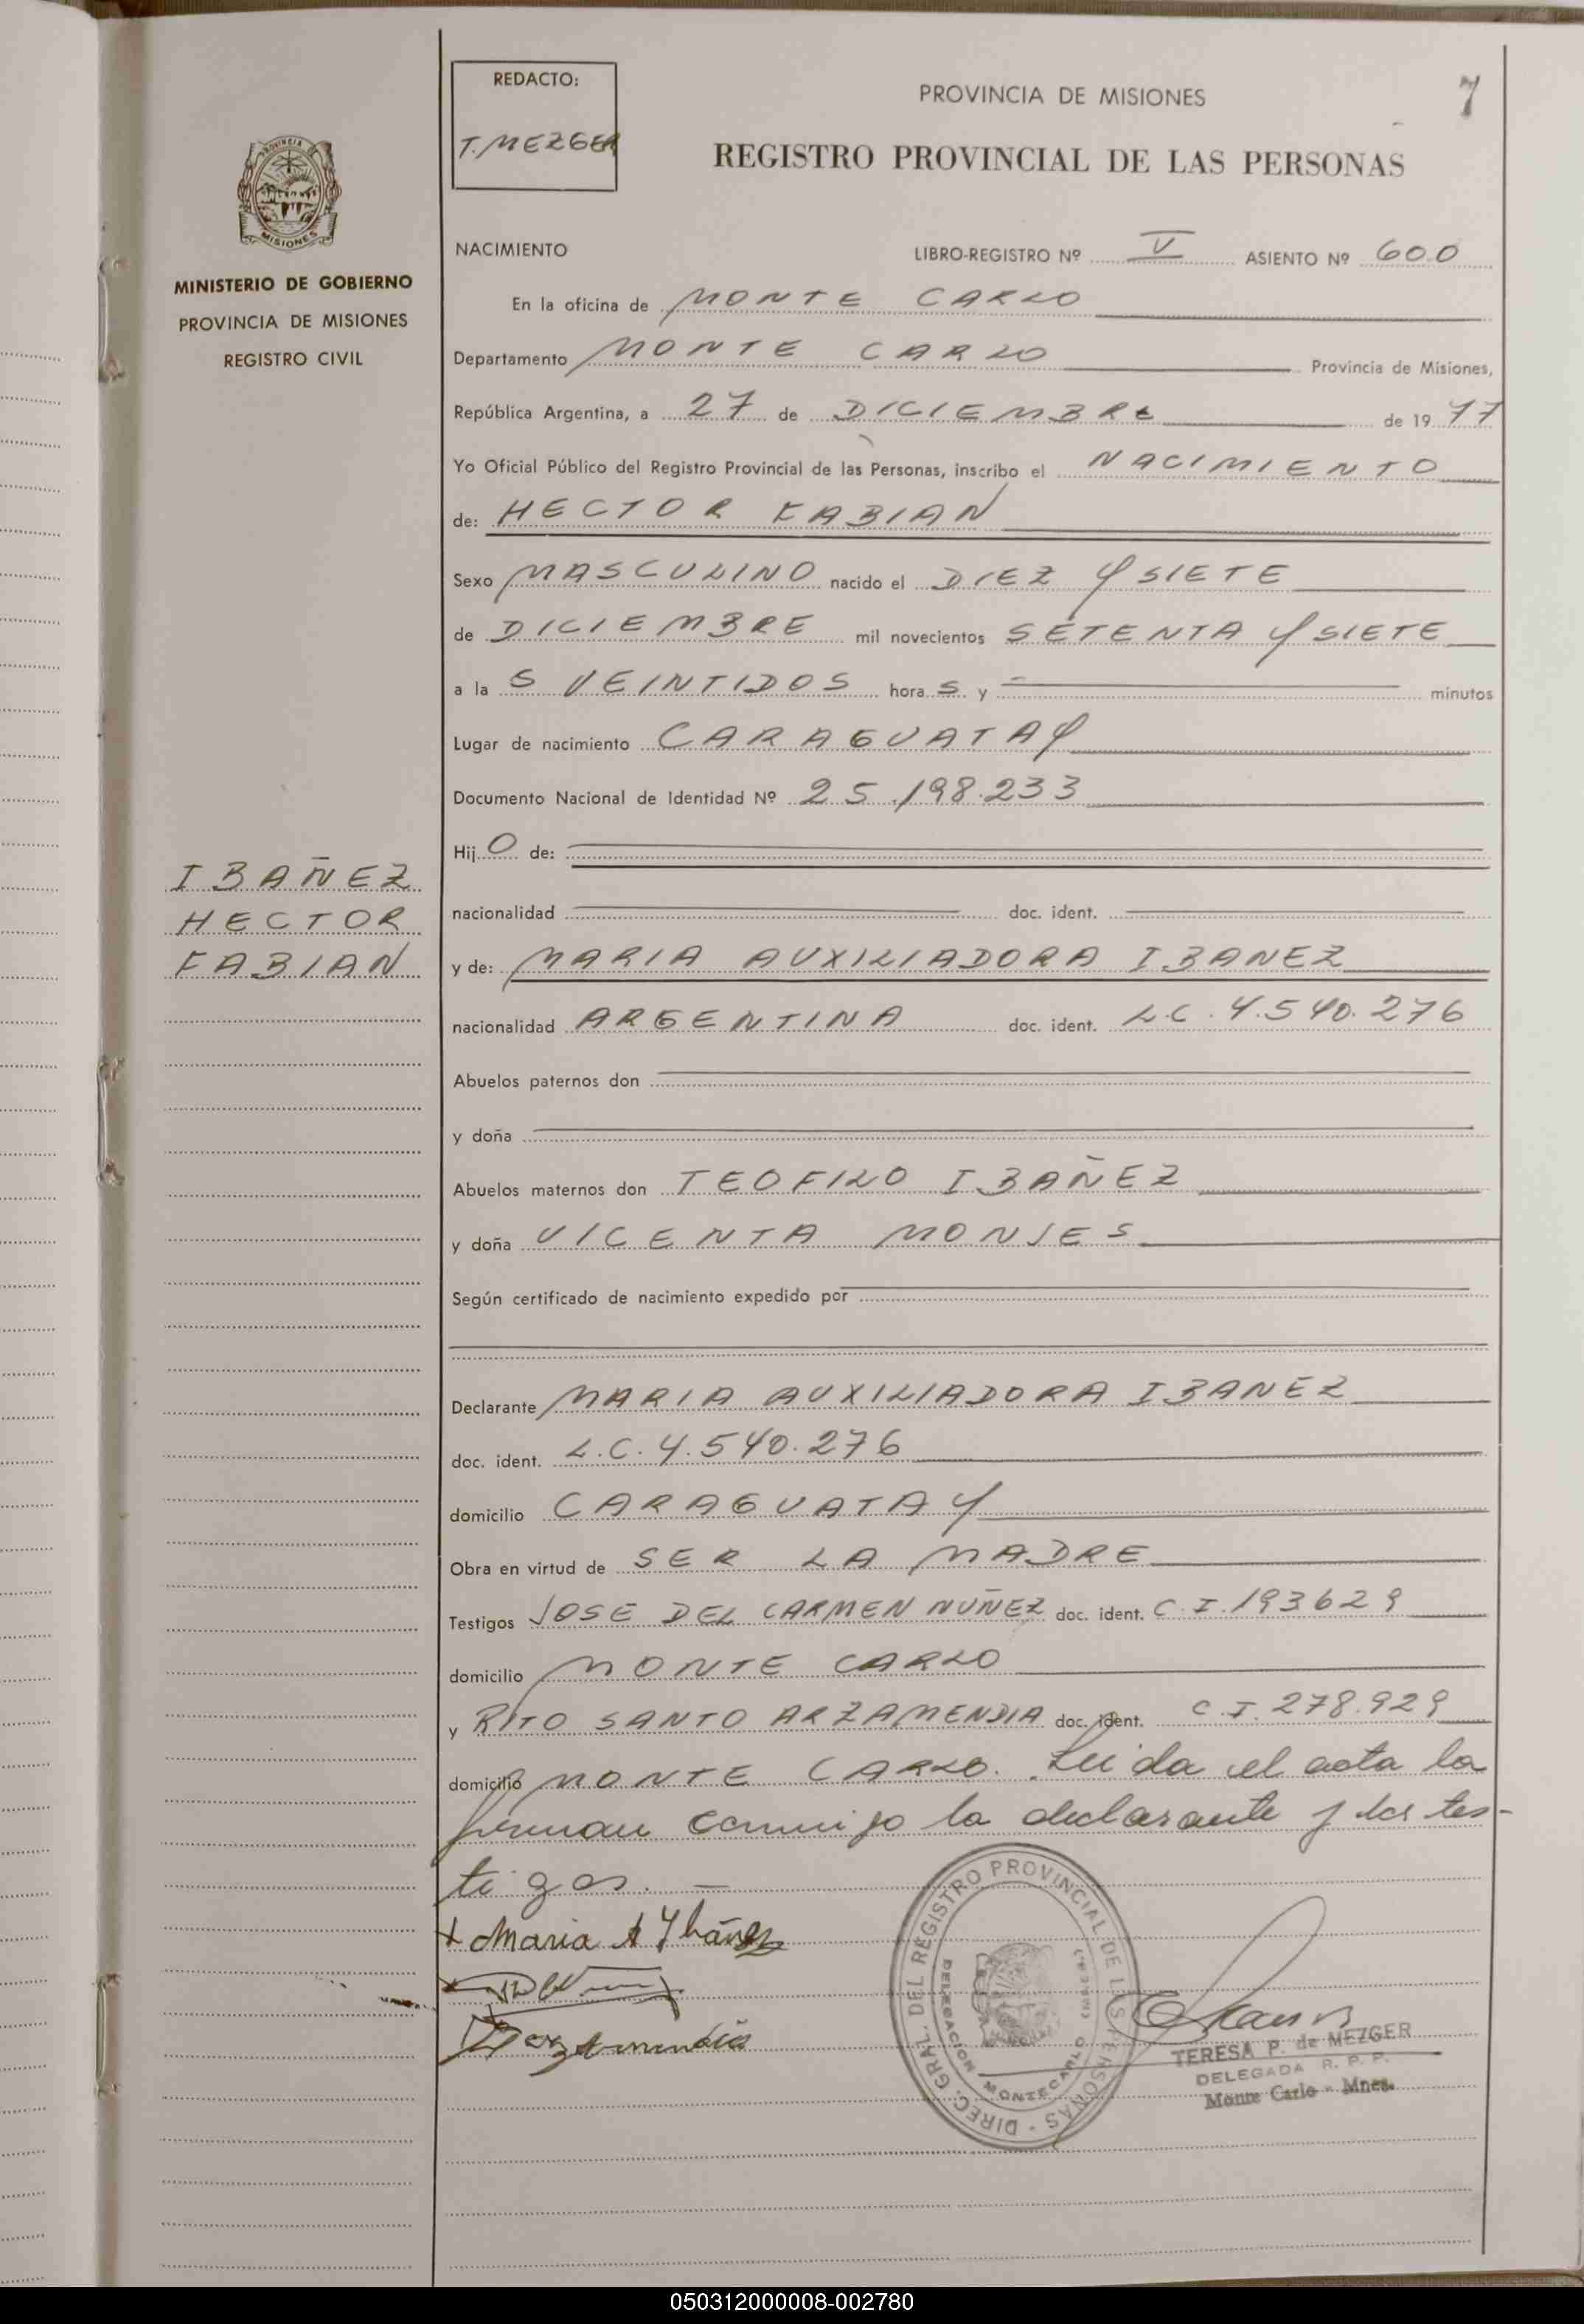 REDACTO:
T. MEZGER
PROVINCIA DE MISIONES
7
REGISTRO PROVINCIAL DE LAS PERSONAS
PROVINCIA DE
MISIONES
MINISTERIO DE GOBIERNO
PROVINCIA DE MISIONES
REGISTRO CIVIL
NACIMIENTO LIBRO-REGISTRO Nº V ASIENTO Nº 600
En la oficina de MONTE CARLO
Departamento MONTE CARLO Provincia de Misiones,
República Argentina, a 27 de DICIEMBRE de 19 77
Yo Oficial Público del Registro Provincial de las Personas, inscribo el NACIMIENTO
de: HECTOR FABIAN
Sexo MASCULINO nacido el DIEZ Y SIETE
de DICIEMBRE mil novecientos SETENTA Y SIETE
a la S VEINTIDOS hora S y minutos
Lugar de nacimiento CARAGUATAY
Documento Nacional de Identidad Nº 25.198.233
Hij O de:
nacionalidad doc. ident.
IBAÑEZ
HECTOR
FABIAN
y de: MARIA AUXILIADORA IBANEZ
nacionalidad ARGENTINA doc. ident. L.C. 4.540.276
Abuelos paternos don
y doña
Abuelos maternos don TEOFILO IBAÑEZ
y doña VICENTA MONJES
Según certificado de nacimiento expedido por
Declarante MARIA AUXILIADORA IBANEZ
doc. ident. L.C. 4.540.276
domicilio CARAGUATAY
Obra en virtud de SER LA MADRE
Testigos JOSE DEL CARMEN NUÑEZ doc. ident. C.I. 193629
domicilio MONTE CARLO
y RITO SANTO ARZAMENDIA doc. ident. C.I. 278.929
domicilio MONTE CARLO. Leida el acta la
firman conmigo la declarante y los tes-
tigos.
Maria A Ybáñez
Arzamendia
DIREC. GRAL. DEL REGISTRO PROVINCIAL DE LAS PERSONAS
DELEGACION MONTECARLO
TERESA P. de MEZGER
DELEGADA R. P. P.
Monte Carlo - Mnes.
050312000008-002780